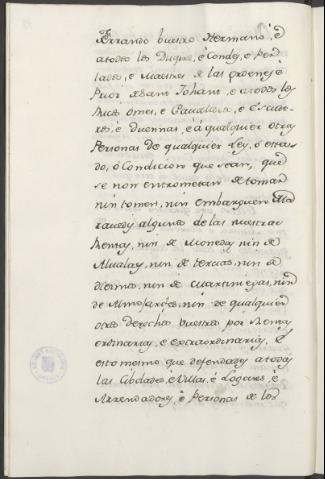 Ferrando vuestro Hermano, é
atodos los Duques, é Condes, é Per
lados, é Maestres de las ordenes é
Prior de Sant Johans, é atodos los
Ricos omes, é Cavalleros, é Escude
ros, é Duennas, é á qualquier otras
Personas de qualquier Ley, ó estta
do, ó Condicion que sean, que
se non entrometan de tomar
nin tomen, nin embarguen Ma
ravedis algunos de las nuestras
Rentas, nin de Monedas nin de
Alcavalas, nin de tercias, nin de
diezmos, nin de quartmesas, nin
de Almojarifes, nin de qualquier
otros derechos vuestros por Rentas
ordinarias, é extraordinarias, é
esto mismo que defendades atodas
las Cibdades, é Villas, é Logares, é
Arrendadores, é Personas de los